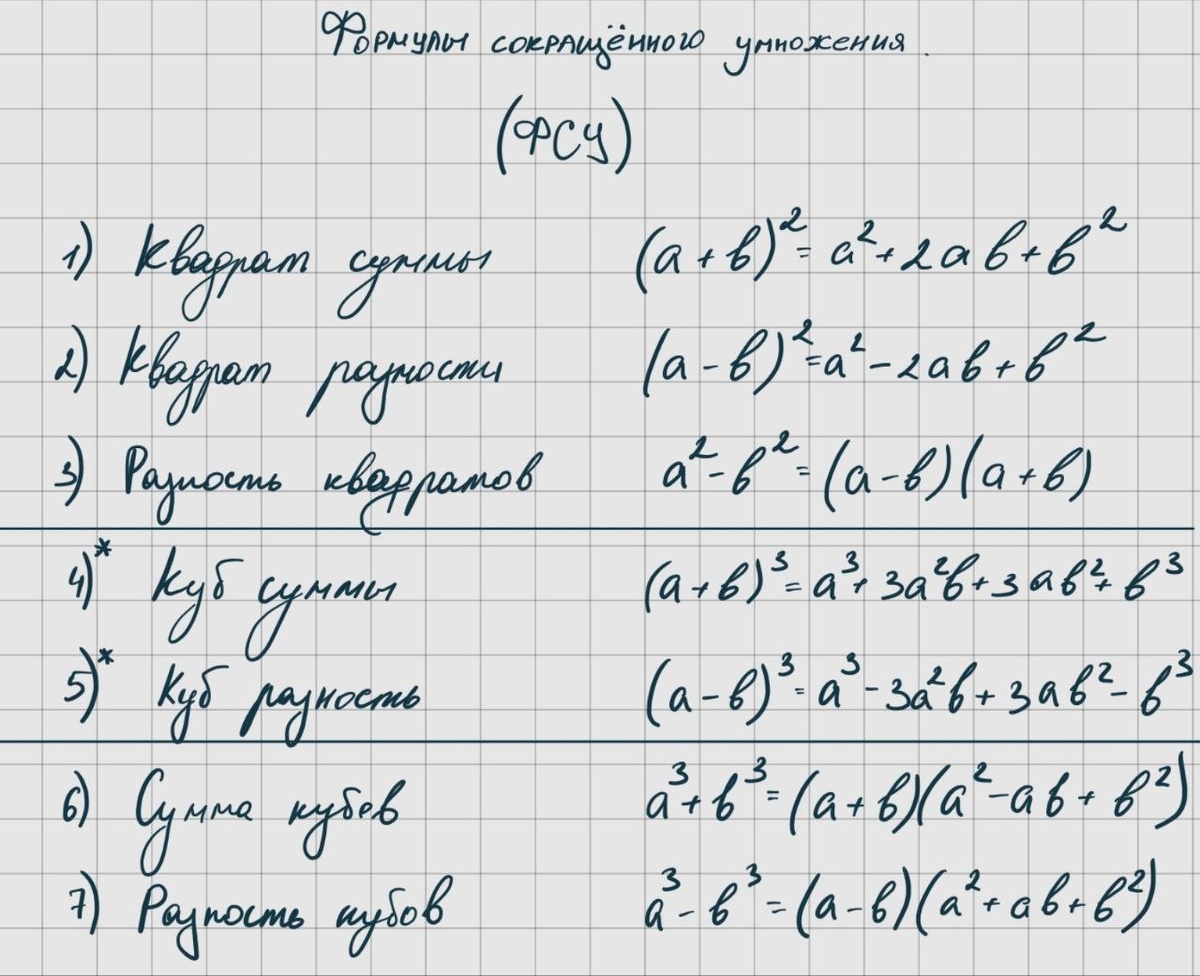 Формулы сокращённого умножения.
(ФСУ)
1) Квадрат суммы (a+b)²= a²+2ab+b²
2) Квадрат разности (a-b)²=a²-2ab+b²
3) Разность квадратов a²-b²=(a-b)(a+b)
4)* Куб суммы (a+b)³=a³+3a²b+3ab²+b³
5)* Куб разность (a-b)³=a³-3a²b+3ab²-b³
6) Сумма кубов a³+b³=(a+b)(a²-ab+b²)
7) Разность кубов a³-b³=(a-b)(a²+ab+b²)